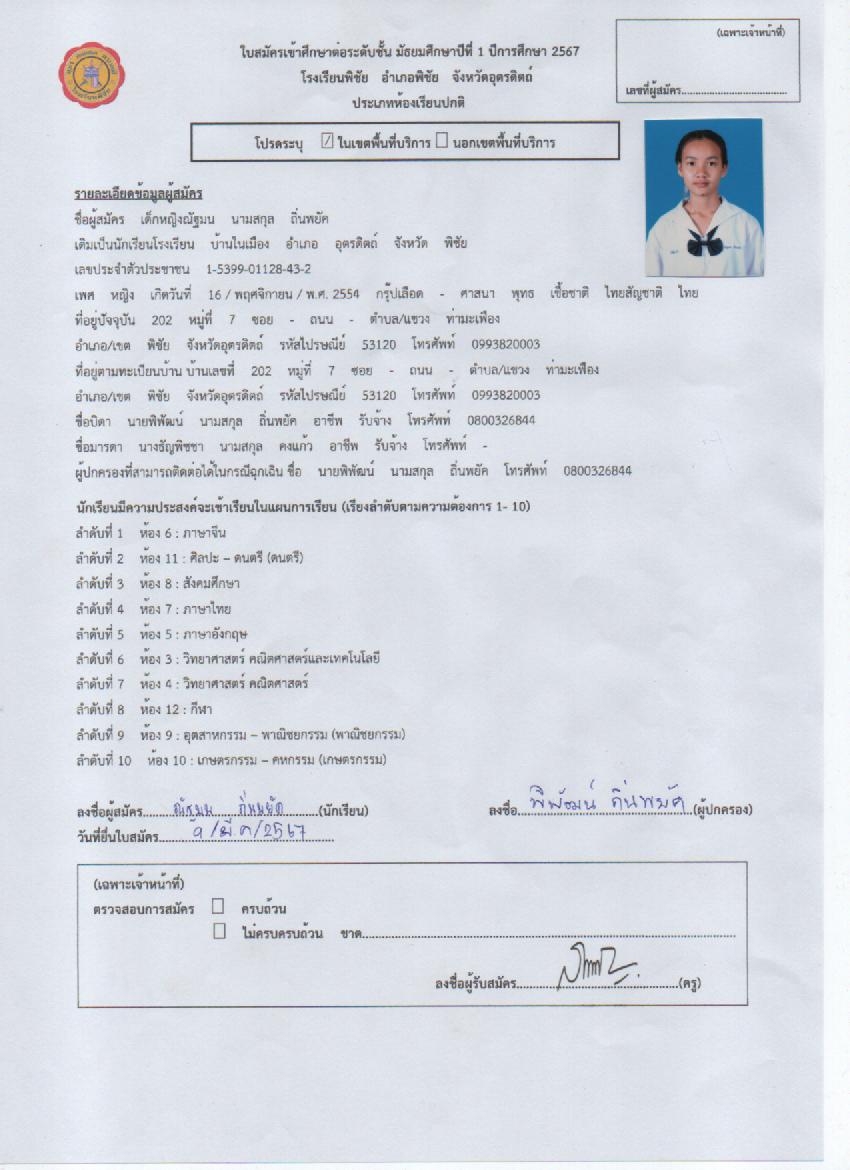 (เฉพาะเจ้าหน้าที่)
เลขที่ผู้สมัคร
ใบสมัครเข้าศึกษาต่อระดับชั้น มัธยมศึกษาปีที่ 1 ปีการศึกษา 2567
โรงเรียนพิชัย อำเภอพิชัย จังหวัดอุตรดิตถ์
ประเภทห้องเรียนปกติ
โปรดระบุ ☑ ในเขตพื้นที่บริการ ☐ นอกเขตพื้นที่บริการ
รายละเอียดข้อมูลผู้สมัคร
ชื่อผู้สมัคร เด็กหญิงณัฐมน นามสกุล ถิ่นพยัค
เดิมเป็นนักเรียนโรงเรียน บ้านในเมือง อำเภอ อุตรดิตถ์ จังหวัด พิชัย
เลขประจำตัวประชาชน 1-5399-01128-43-2
เพศ หญิง เกิดวันที่ 16 / พฤศจิกายน / พ.ศ. 2554 กรุ๊ปเลือด - ศาสนา พุทธ เชื้อชาติ ไทยสัญชาติ ไทย
ที่อยู่ปัจจุบัน 202 หมู่ที่ 7 ซอย - ถนน - ตำบล/แขวง ท่ามะเฟือง
อำเภอ/เขต พิชัย จังหวัดอุตรดิตถ์ รหัสไปรษณีย์ 53120 โทรศัพท์ 0993820003
ที่อยู่ตามทะเบียนบ้าน บ้านเลขที่ 202 หมู่ที่ 7 ซอย - ถนน - ตำบล/แขวง ท่ามะเฟือง
อำเภอ/เขต พิชัย จังหวัดอุตรดิตถ์ รหัสไปรษณีย์ 53120 โทรศัพท์ 0993820003
ชื่อบิดา นายพิพัฒน์ นามสกุล ถิ่นพยัค อาชีพ รับจ้าง โทรศัพท์ 0800326844
ชื่อมารดา นางธัญพิชชา นามสกุล คงแก้ว อาชีพ รับจ้าง โทรศัพท์ -
ผู้ปกครองที่สามารถติดต่อได้ในกรณีฉุกเฉิน ชื่อ นายพิพัฒน์ นามสกุล ถิ่นพยัค โทรศัพท์ 0800326844
นักเรียนมีความประสงค์จะเข้าเรียนในแผนการเรียน (เรียงลำดับตามความต้องการ 1- 10)
ลำดับที่ 1 ห้อง 6 : ภาษาจีน
ลำดับที่ 2 ห้อง 11 : ศิลปะ – ดนตรี (ดนตรี)
ลำดับที่ 3 ห้อง 8 : สังคมศึกษา
ลำดับที่ 4 ห้อง 7 : ภาษาไทย
ลำดับที่ 5 ห้อง 5 : ภาษาอังกฤษ
ลำดับที่ 6 ห้อง 3 : วิทยาศาสตร์ คณิตศาสตร์และเทคโนโลยี
ลำดับที่ 7 ห้อง 4 : วิทยาศาสตร์ คณิตศาสตร์
ลำดับที่ 8 ห้อง 12 : กีฬา
ลำดับที่ 9 ห้อง 9 : อุตสาหกรรม – พาณิชยกรรม (พาณิชยกรรม)
ลำดับที่ 10 ห้อง 10 : เกษตรกรรม – คหกรรม (เกษตรกรรม)
ลงชื่อผู้สมัคร ณัฐมน ถิ่นพยัค (นักเรียน) ลงชื่อ พิพัฒน์ ถิ่นพยัค (ผู้ปกครอง)
วันที่ยื่นใบสมัคร 9 /มี.ค/2567
(เฉพาะเจ้าหน้าที่)
ตรวจสอบการสมัคร ☐ ครบถ้วน
☐ ไม่ครบครบถ้วน ขาด
ลงชื่อผู้รับสมัคร (ครู)